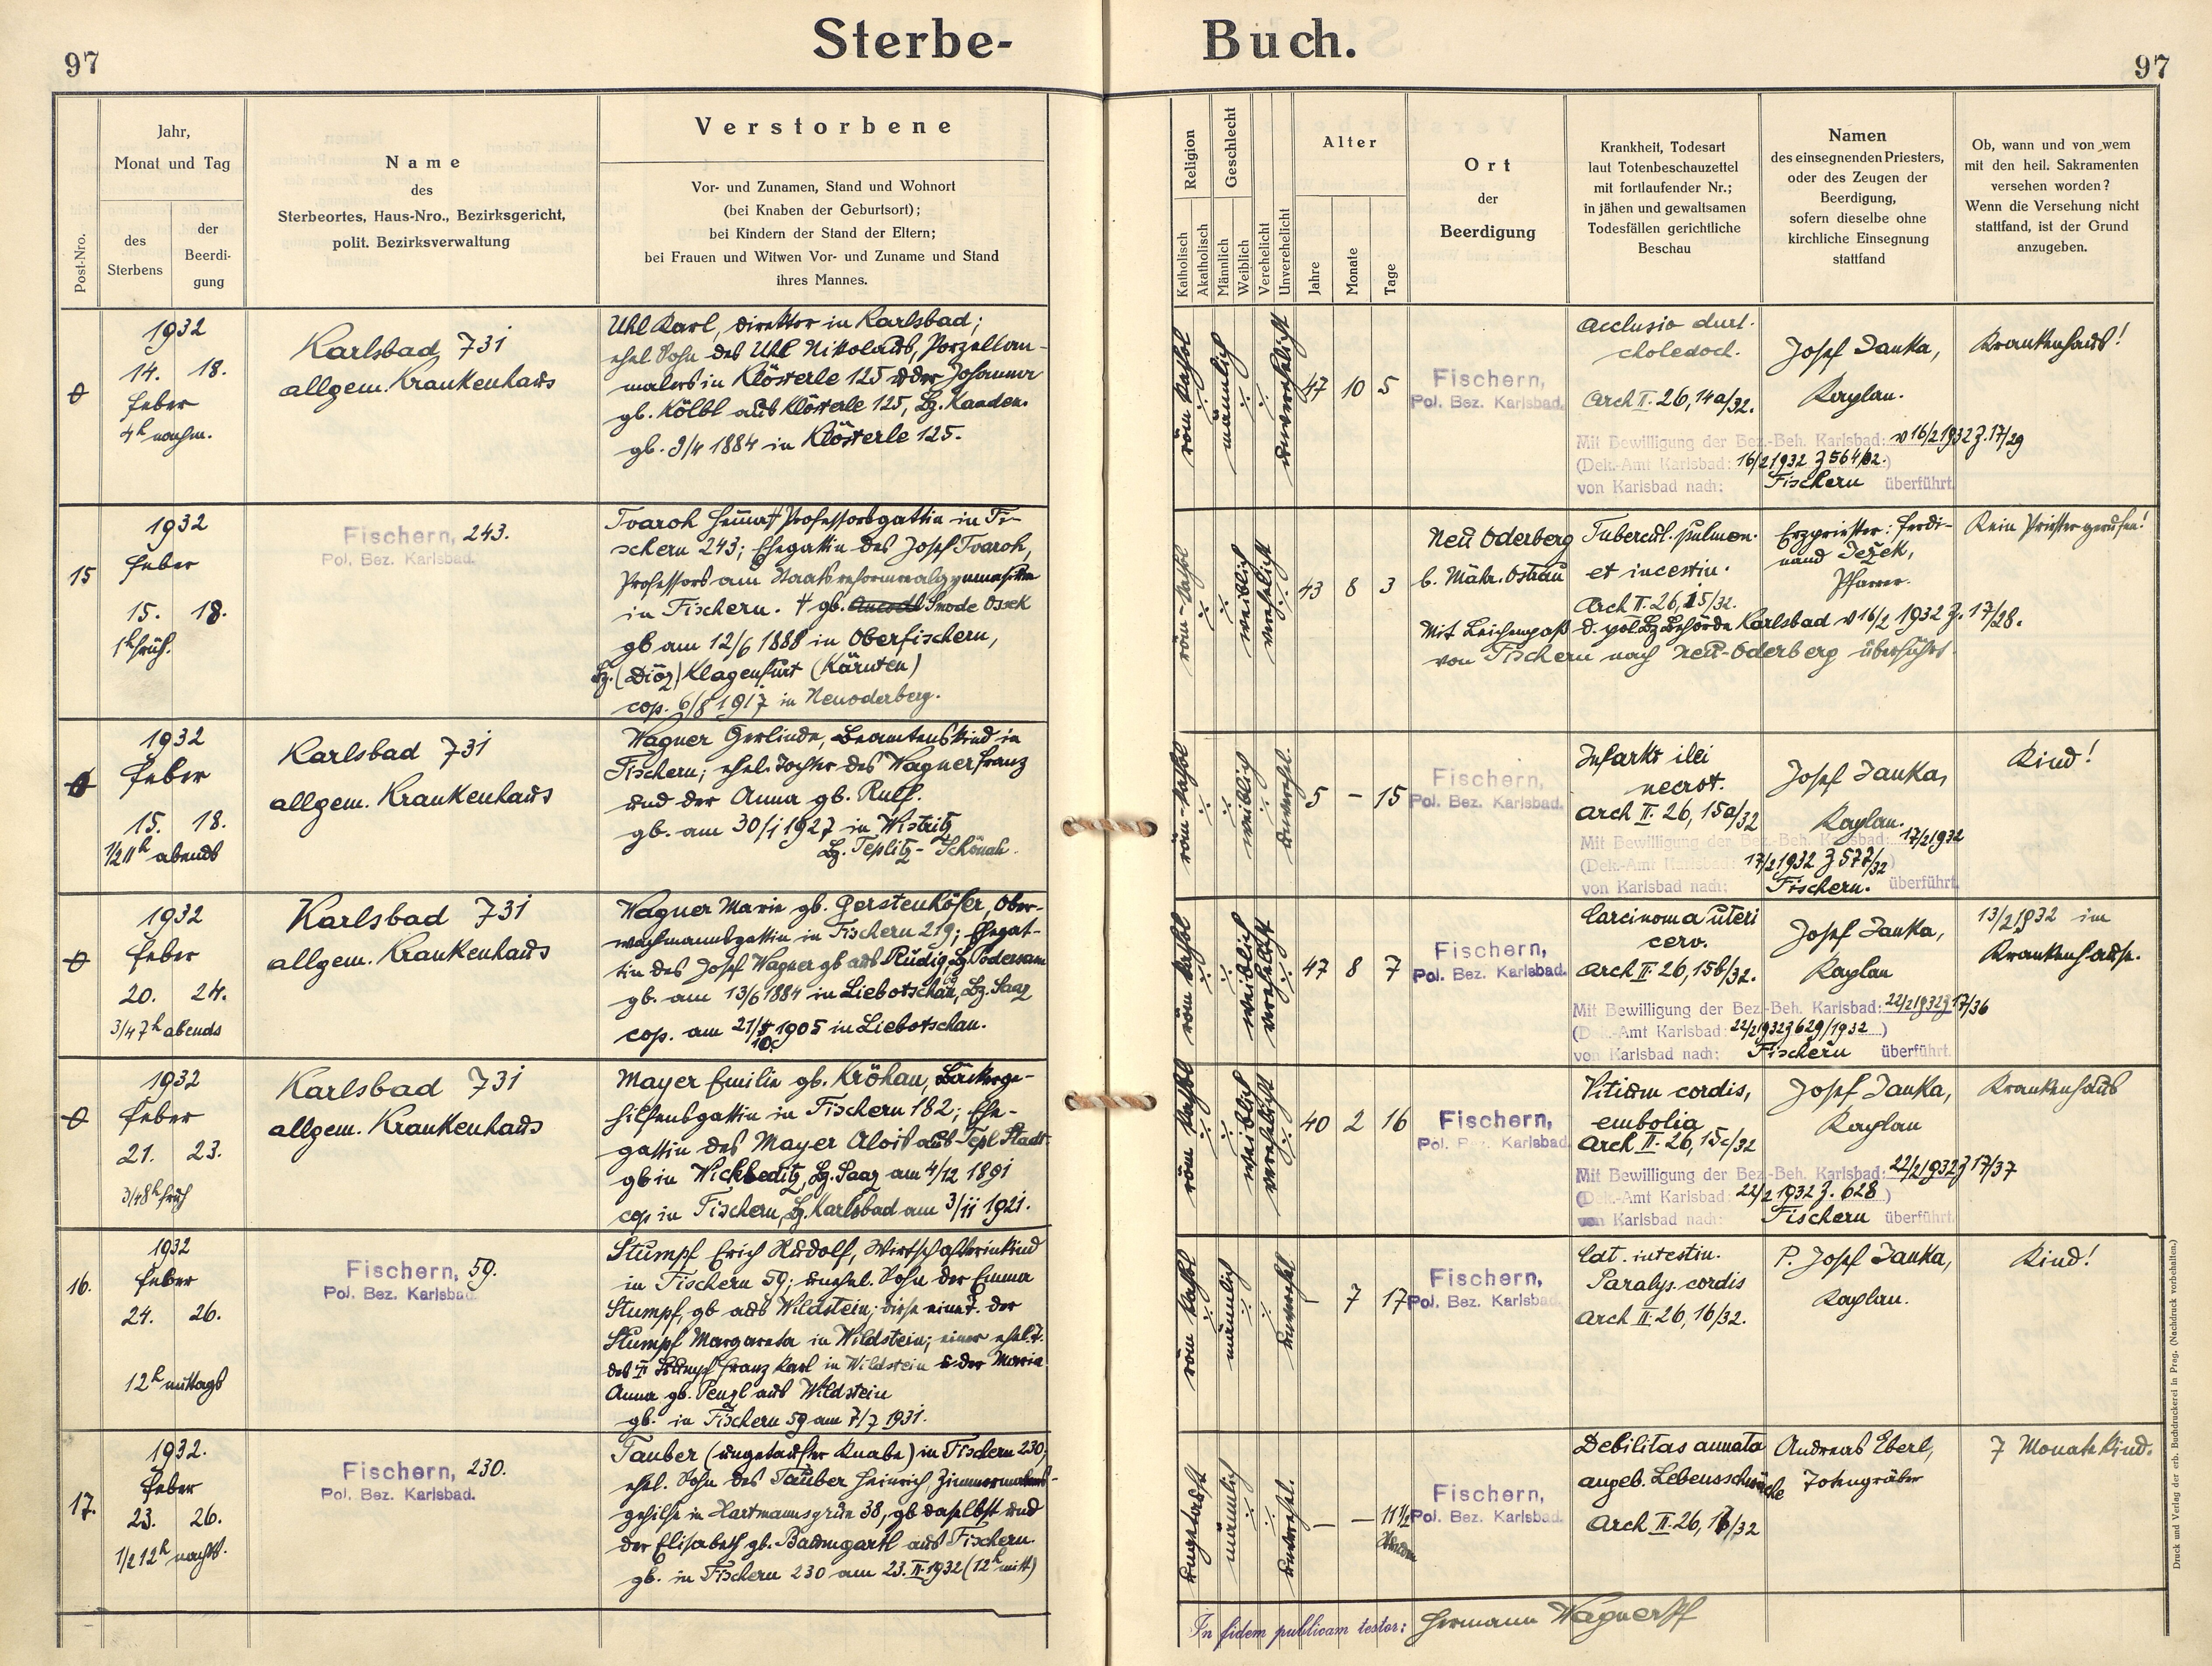 97
Sterbe-
Buch.
97
Post-Nro.
Jahr,
Monat und Tag
des
Sterbens
der
Beerdi-
gung
Name
des
Sterbeortes, Haus-Nro., Bezirksgericht,
polit. Bezirksverwaltung
Verstorbene
Vor- und Zunamen, Stand und Wohnort
(bei Knaben der Geburtsort);
bei Kindern der Stand der Eltern;
bei Frauen und Witwen Vor- und Zuname und Stand
ihres Mannes.
Religion
Katholisch
Akatholisch
Geschlecht
Männlich
Weiblich
Verehelicht
Unverehelicht
Alter
Jahre
Monate
Tage
Ort
der
Beerdigung
Krankheit, Todesart
laut Totenbeschauzettel
mit fortlaufender Nr.;
in jähen und gewaltsamen
Todesfällen gerichtliche
Beschau
Namen
des einsegnenden Priesters,
oder des Zeugen der
Beerdigung,
sofern dieselbe ohne
kirchliche Einsegnung
stattfand
Ob, wann und von wem
mit den heil. Sakramenten
versehen worden?
Wenn die Versehung nicht
stattfand, ist der Grund
anzugeben.
1932
14. 18.
feber
4h nachm.
Karlsbad 731
allgem. Krankenhaus
Uhl Karl, Direktor in Karlsbad;
ehel Sohn des Uhl Nikolaus, Porzellan-
malers in Klösterle 125 u der Johanna
gb. Kölbl aus Klösterle 125, Bz. Kaaden.
gb. 9/4 1884 in Klösterle 125.
röm kathol
männlich
unverehelicht
47 10 5
Fischern,
Pol. Bez. Karlsbad.
Occlusio duct.
choledoch.
Arch II. 26, 14a/32.
Josef Janka,
Kaplan.
Krankenhaus!
Mit Bewilligung der Bez.-Beh. Karlsbad: v 16/2 1932 Z. 17/29
(Dek.-Amt Karlsbad: 16/2 1932 Z 564/32.)
von Karlsbad nach: Fischern überführt.
15
1932
feber
15. 18.
1h früh.
Fischern, 243.
Pol. Bez. Karlsbad.
Tvaroh Hemma † Professorsgattin in Fi-
schern 243; Ehegattin des Josef Tvaroh,
Professors am Staatsreformrealgymnasium
in Fischern. † gb. Smode Ossek
gb am 12/6 1888 in Oberfischern,
Bz. (Diöz) Klagenfurt (Kärnten)
cop. 6/8 1917 in Neuoderberg.
röm-kathol
weiblich
verehelicht
43 8 3
Neu Oderberg
b. Mähr. Ostrau
Tubercul. pulmon.
et incestin.
Arch II. 26, 15/32.
Erzpriester: Ferdi-
nand Ježek,
Pfarrer.
Kein Priester gerufen!
Mit Leichenpaß d. pol. Bz Behörde Karlsbad v 16/2 1932 Z. 17/28.
von Fischern nach Neu-Oderberg überführt.
1932
feber
15. 18.
1/2 11h abends
Karlsbad 731
allgem. Krankenhaus
Wagner Gerlinde, Beamtenskind in
Fischern; ehel. Tochter des Wagner Franz
und der Anna gb. Rulf.
gb. am 30/1 1927 in Wistritz
Bz. Teplitz-Schönau.
röm-kathol
weiblich
unverehel.
5 - 15
Fischern,
Pol. Bez. Karlsbad.
Infarkt ilei
necrot.
Arch II. 26, 15a/32
Josef Janka,
Kaplan.
Kind!
Mit Bewilligung der Bez.-Beh. Karlsbad: 17/2 1932
(Dek.-Amt Karlsbad: 17/2 1932 Z 577/32)
von Karlsbad nach: Fischern. überführt.
1932
feber
20. 24.
3/4 7h abends
Karlsbad 731
allgem. Krankenhaus
Wagner Marie gb. Gerstenhöfer, Ober-
wachmannsgattin in Fischern 219; Ehegat-
tin des Josef Wagner gb aus Rudig, Bz. Podersam
gb. am 13/6 1884 in Liebotschau, Bz. Saaz
cop. am 21/10 1905 in Liebotschau.
röm kathol
weiblich
verehelicht
47 8 7
Fischern,
Pol. Bez. Karlsbad.
Carcinoma uteri
cerv.
Arch II. 26, 15b/32.
Josef Janka,
Kaplan
13/2 1932 im
Krankenhause.
Mit Bewilligung der Bez.-Beh. Karlsbad: 22/2 1932 Z 17/36
(Dek.-Amt Karlsbad: 22/2 1932 Z 629/1932)
von Karlsbad nach: Fischern überführt.
1932
feber
21. 23.
3/4 8h früh
Karlsbad 731
allgem. Krankenhaus
Mayer Emilie gb. Kröhan, Bäckerge-
hilfensgattin in Fischern 182; Ehe-
gattin des Mayer Alois aus Tepl Stadt
gb in Wickleditz, Bz. Saaz am 4/12 1891
cop in Fischern, Bz. Karlsbad am 3/11 1921.
röm kathol
weiblich
verehelicht
40 2 16
Fischern,
Pol. Bez. Karlsbad
Vitium cordis,
embolia
Arch II. 26, 15c/32
Josef Janka,
Kaplan
Krankenhaus
Mit Bewilligung der Bez.-Beh. Karlsbad: 22/2 1932 Z 17/37
(Dek.-Amt Karlsbad: 22/2 1932 Z. 628)
von Karlsbad nach: Fischern überführt.
16.
1932
feber
24. 26.
12h mittags
Fischern, 59.
Pol. Bez. Karlsbad
Stumpf Erich Rudolf, Wirtschafterinkind
in Fischern 59; unehel. Sohn der Emma
Stumpf, gb aus Wildstein; diese eine T. der
Stumpf Margareta in Wildstein; einer ehel. T.
des Stumpf Franz Karl in Wildstein u. der Maria
Anna gb. Penzl aus Wildstein
gb. in Fischern 59 am 7/7 1931.
röm kathol
männlich
unverehel
- 7 17
Fischern,
Pol. Bez. Karlsbad.
Cat. intestin.
Paralys. cordis
Arch II. 26, 16/32.
P. Josef Janka,
Kaplan.
Kind!
17.
1932.
feber
23. 26.
1/2 12h nachts.
Fischern, 230.
Pol. Bez. Karlsbad.
Tauber (ungetaufter Knabe) in Fischern 230,
ehel. Sohn des Tauber Heinrich Zimmermanns-
gehilfe in Hartmannsgrün 38, gb daselbst und
der Elisabeth gb. Baumgartl aus Fischern.
gb. in Fischern 230 am 23. II. 1932 (12h mitt)
ungetauft
männlich
unverehel.
- - 11 1/2
Stunden
Fischern,
Pol. Bez. Karlsbad.
Debilitas annata
angeb. Lebensschwäche
Arch II. 26, 17/32
Andreas Eberl,
Totengräber
7 Monate Kind.
In fidem publicam testor: Hermann Wagner Pf
Druck und Verlag der erb. Buchdruckerei in Prag. (Nachdruck vorbehalten.)